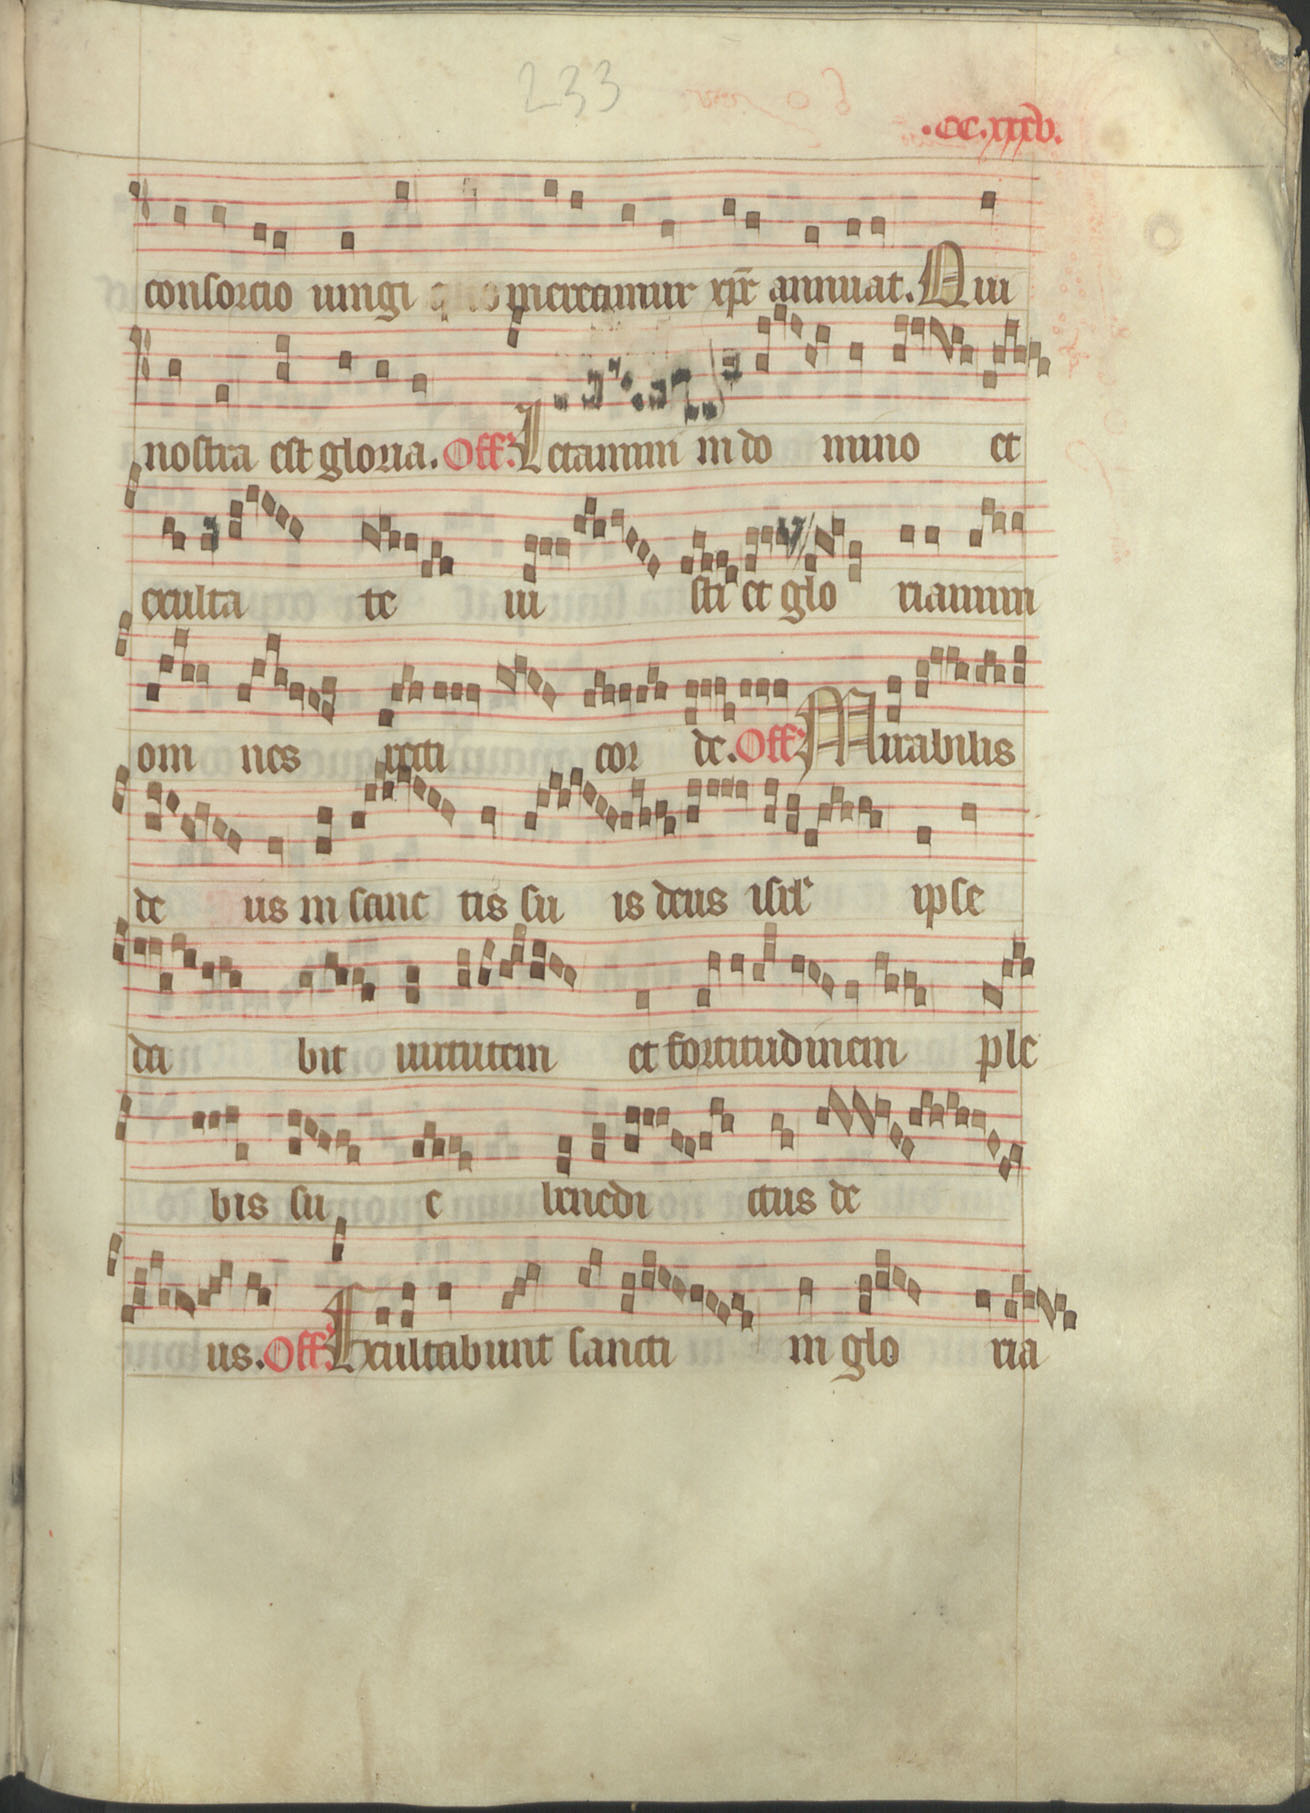 233
.cc.xxxv.
consorcio iungi quo mereamur xpr annuat. Qui
nostra est gloria. Off. Letamini in do mino et
exulta te iu sti et glo riamini
om nes recti cor de. Off. Mirabilis
de us in sanc tis su is deus isrl ipse
da bit uirtutem et fortitudinem ple
bis su e benedi ctus de
us. Off. Exultabunt sancti in glo ria